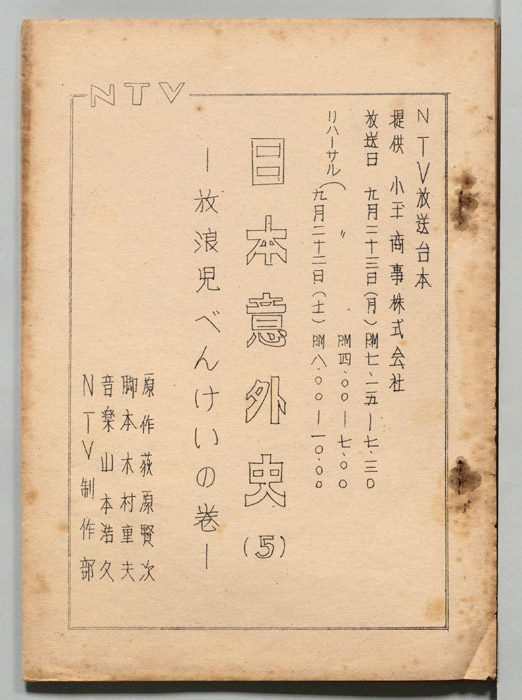 NTV
NTV放送台本
提供 小王商事株式会社
放送日 九月二十三日(月)PM七.一五―七.三〇
リハーサル( 〃 PM四.〇〇―七.〇〇
九月二十二日(土)PM八.〇〇―一〇.〇〇
日本意外史(5)
―放浪児べんけいの巻―
原作 荻原賢次
脚本 木村重夫
音楽 山本浩久
NTV制作部